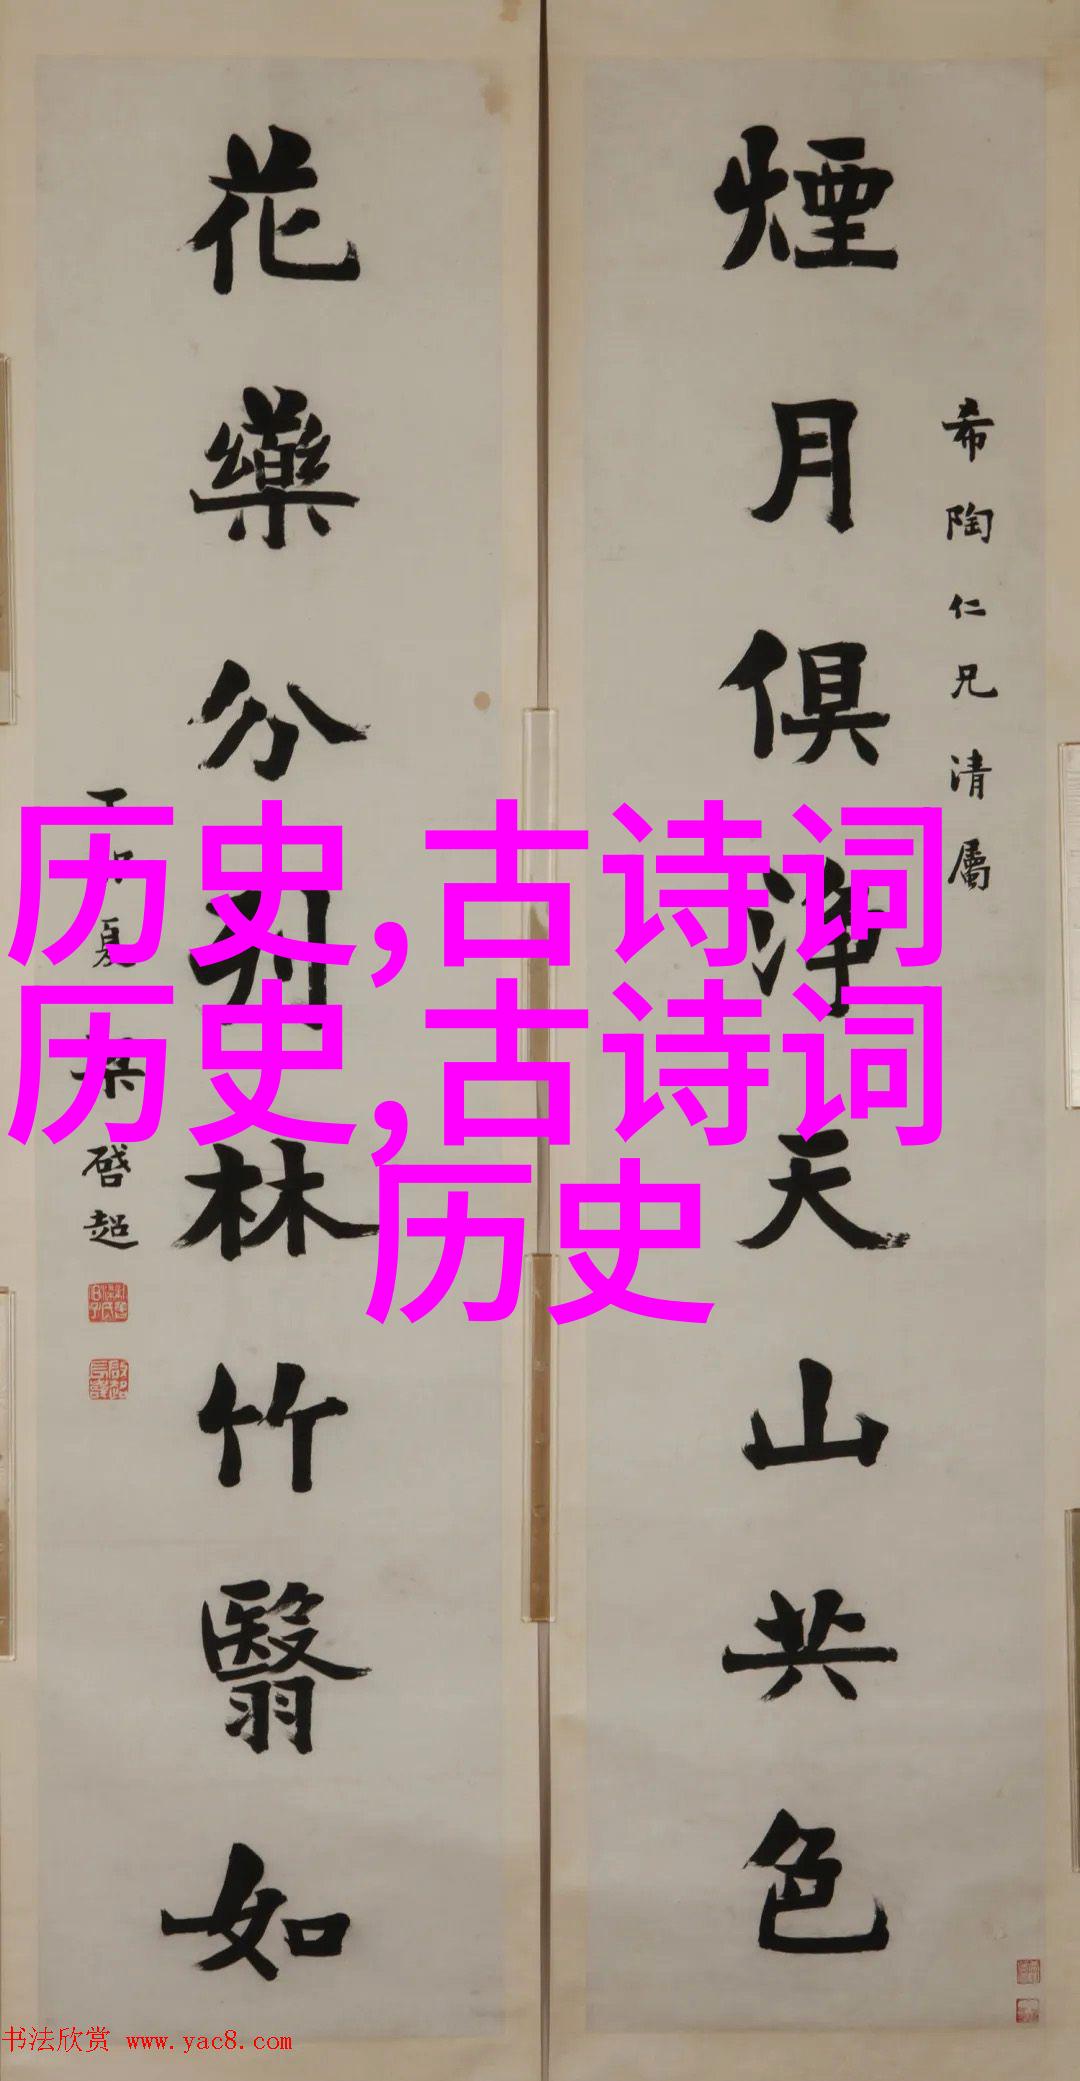 煙月俱淨天山共色
希陶仁兄清屬
花藥分列林竹翳如
丁卯夏 梁啓超
历史,古诗词
历史,古诗词
历史
书法欣赏 www.yac8.com